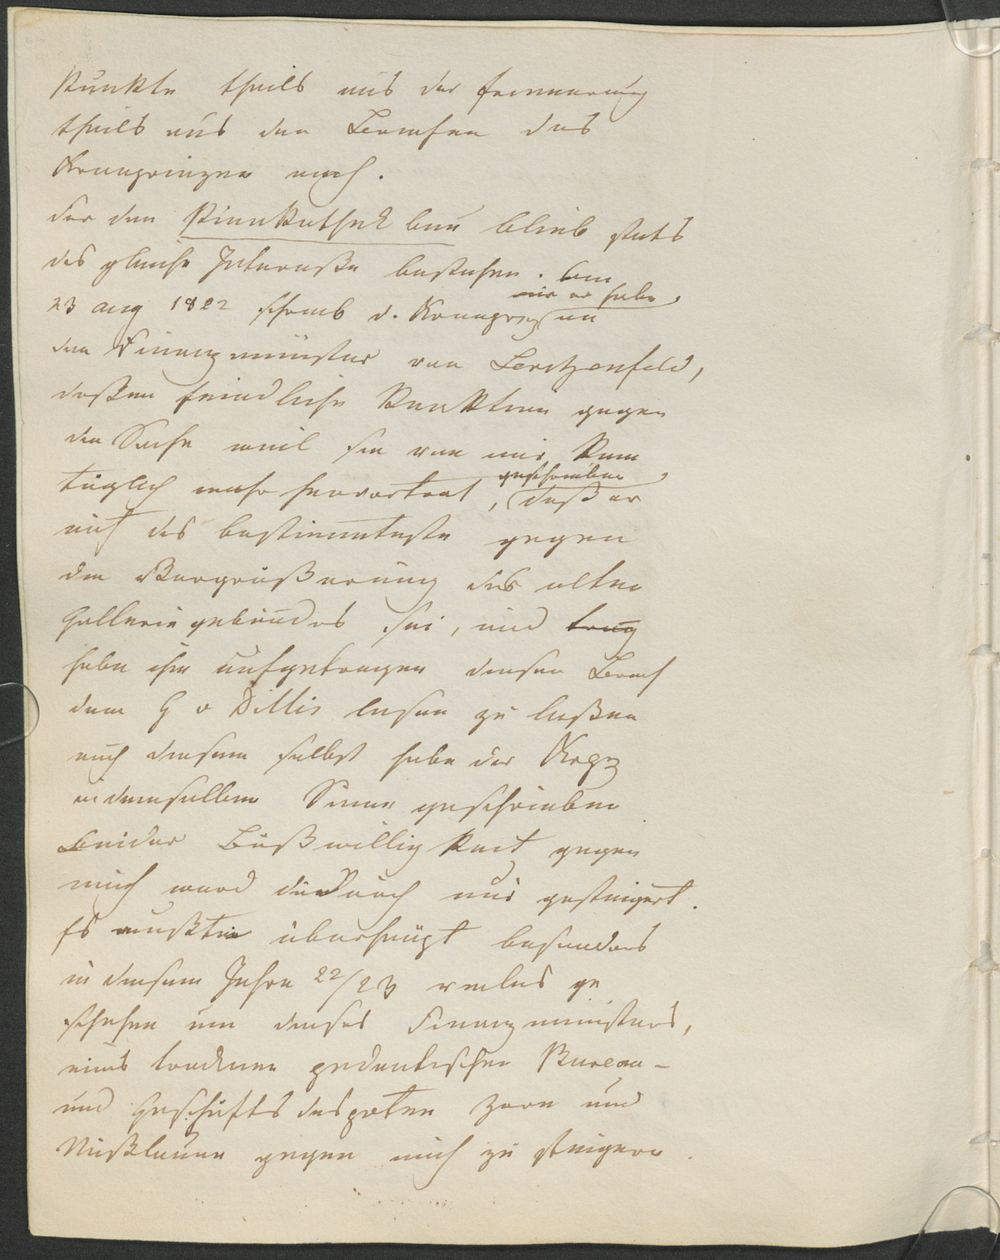 Punkte theils aus der Erinnerung
theils aus den Briefen des
Kronprinzen nach.
Für den Pinakothekbau blieb stets
das gleiche Interesse bestehen. Am
mir er habe
23 aug 1822 schrieb d. Kronprz an
den Finanzminister von Lerchenfeld,
dessen feindliche Reaktion gegen
die Sache weil sie von mir kam
täglich mehr hervortrat, geschrieben,
daß er
auf das bestimmteste gegen
die Vergrößerung des alten
Galleriegebäudes sei, und
habe ihm aufgetragen diesen Brief
dem G v Dillis lesen zu laßen
auch diesem selbst habe der Krpz
in demselben Sinne geschrieben
Beider Böswilligkeit gegen
mich ward dadurch nur gesteigert.
Es mußte überhaupt besonders
in diesem Jahre 22/23 vieles ge
schehen um dieses Finanzministers,
eines trockenen pedantischen Bureau-
und Geschäftsdespoten Zorn und
Mißlaune gegen mich zu steigern.